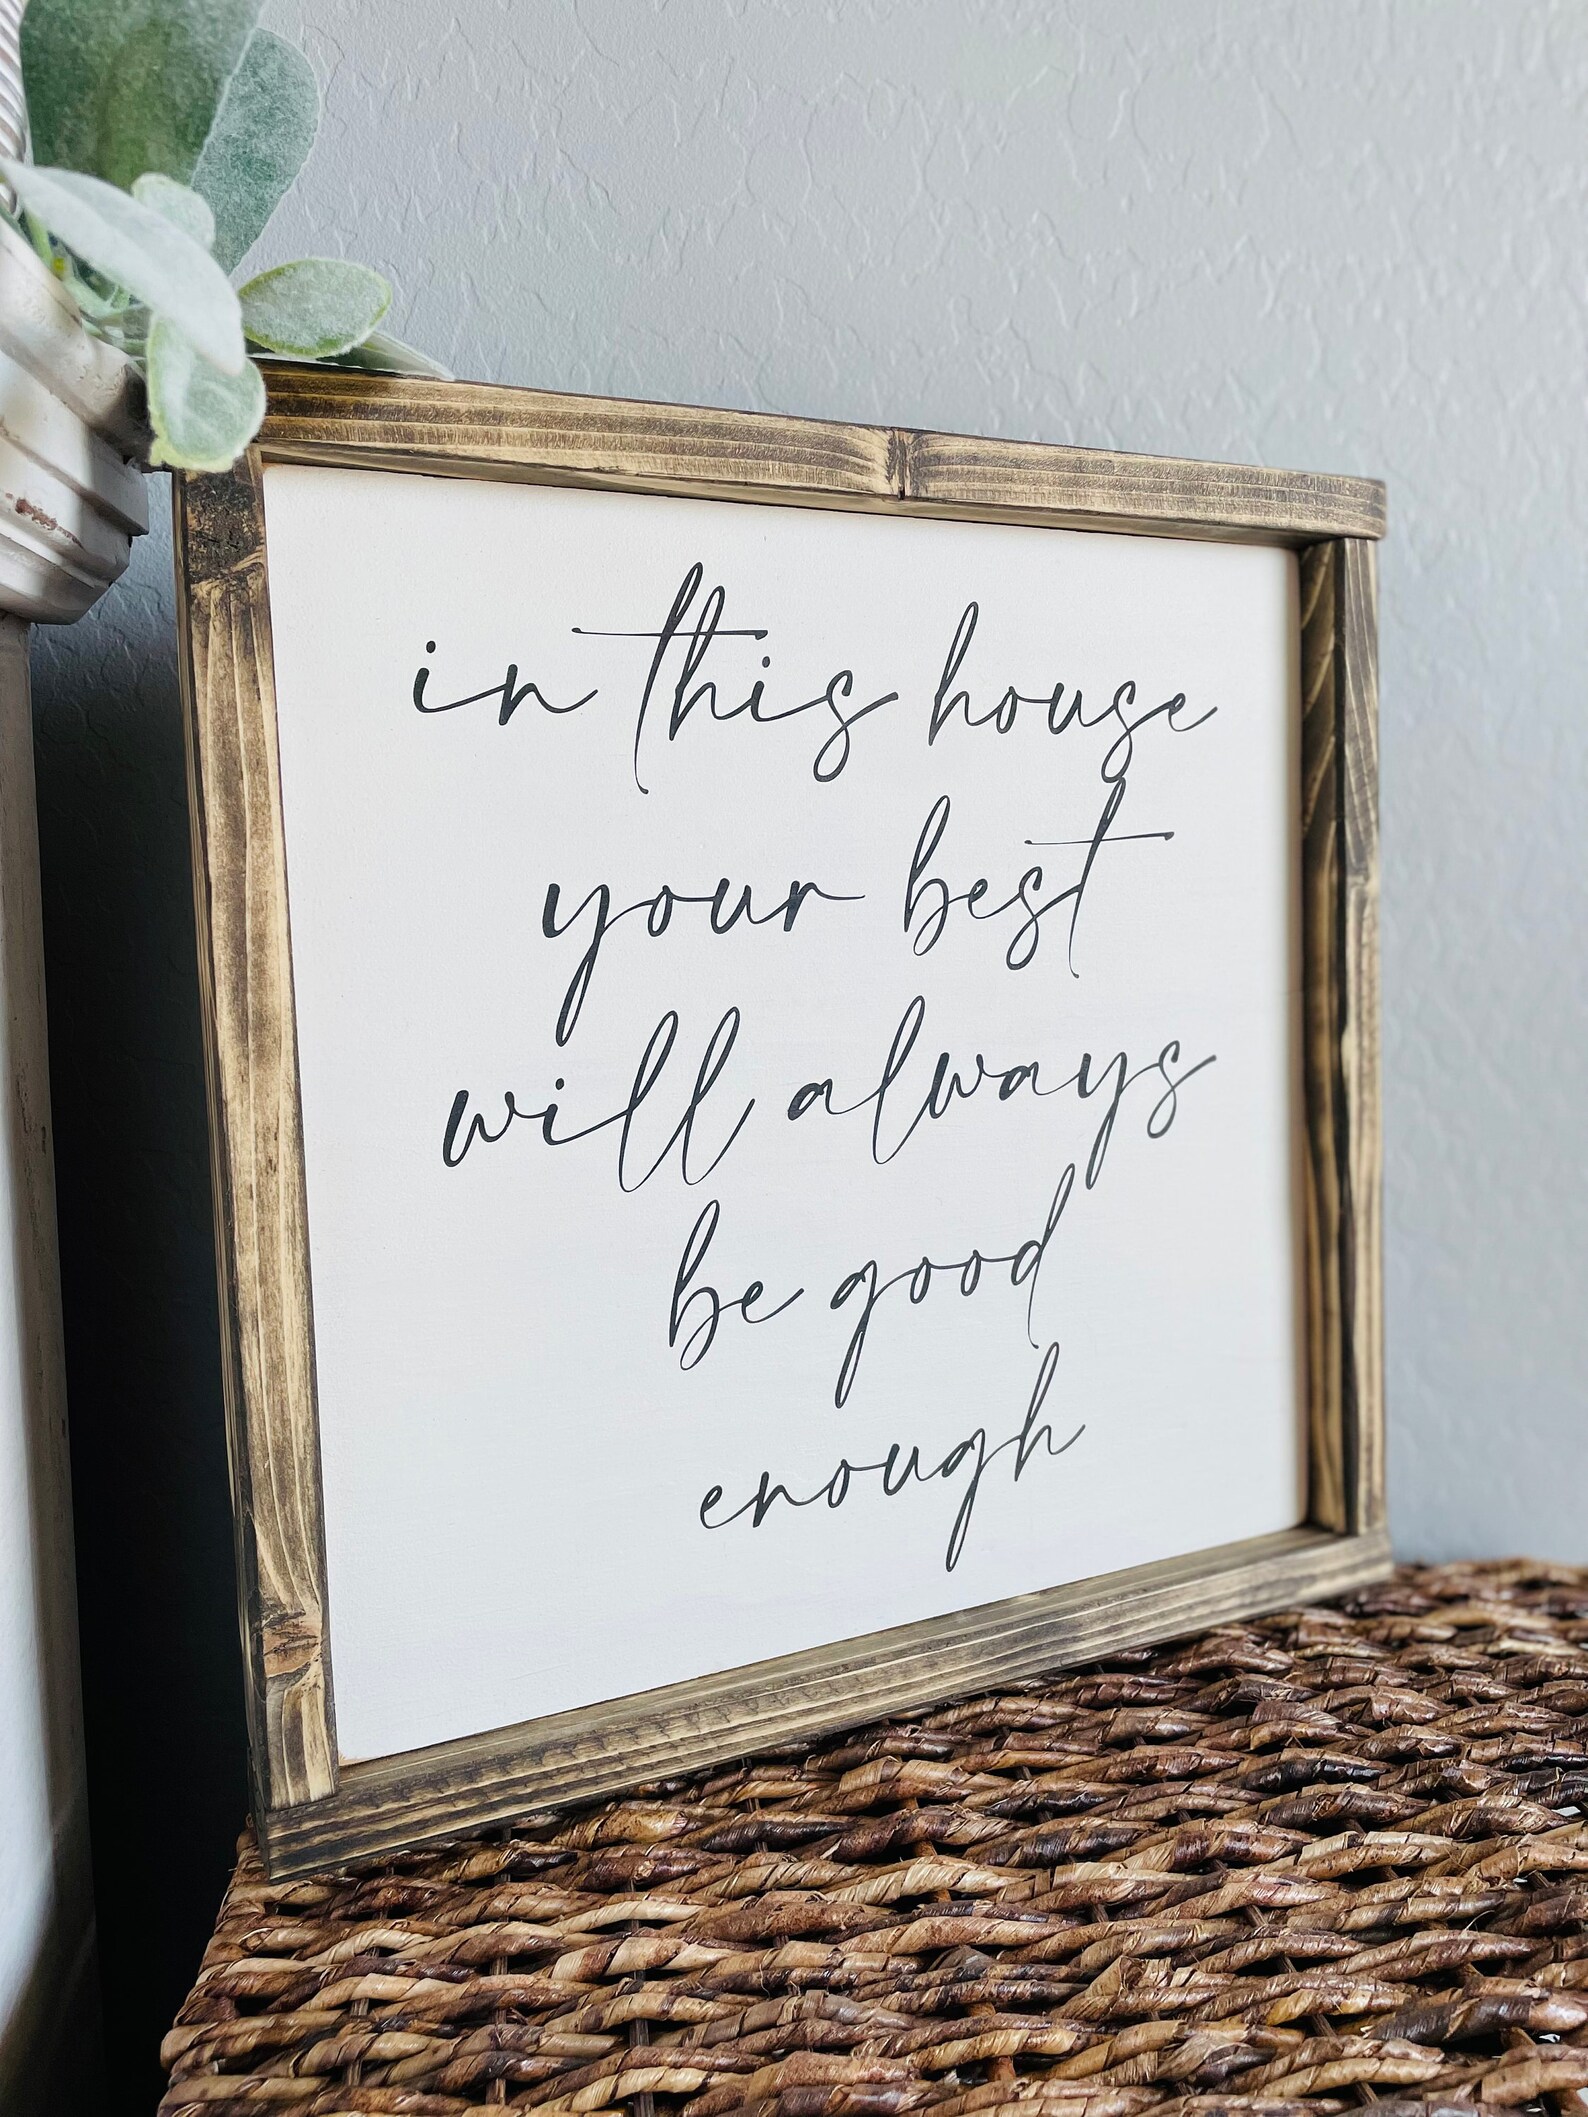 in this house
your best
will always
be good
enough